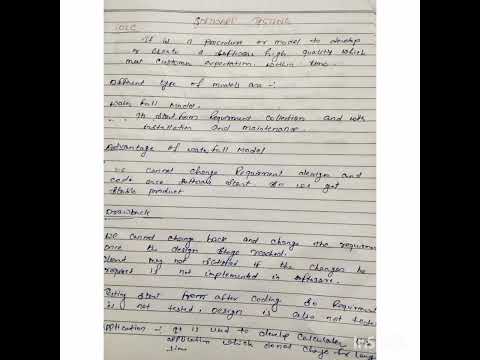 SOFTWARE TESTING
SDLC
It is a Procedure or model to develop
or create a software high quality which
met customer expectation within time.
Different type of models are :-
Water fall Model.
It start from Requirment collection and
installation and maintenance.
Advantage of water fall Model
we cannot change Requirment design and
code once software start. So we get
stable product
Drawback
we cannot change back and change the requirment
once the design stage reached.
client may not satisfied if the changes he
request is not implemented in software.
Testing start from after coding so Requirment
is not tested, design is also not tested
Application :- It is used to develop calculator
application which cannot change for long
time